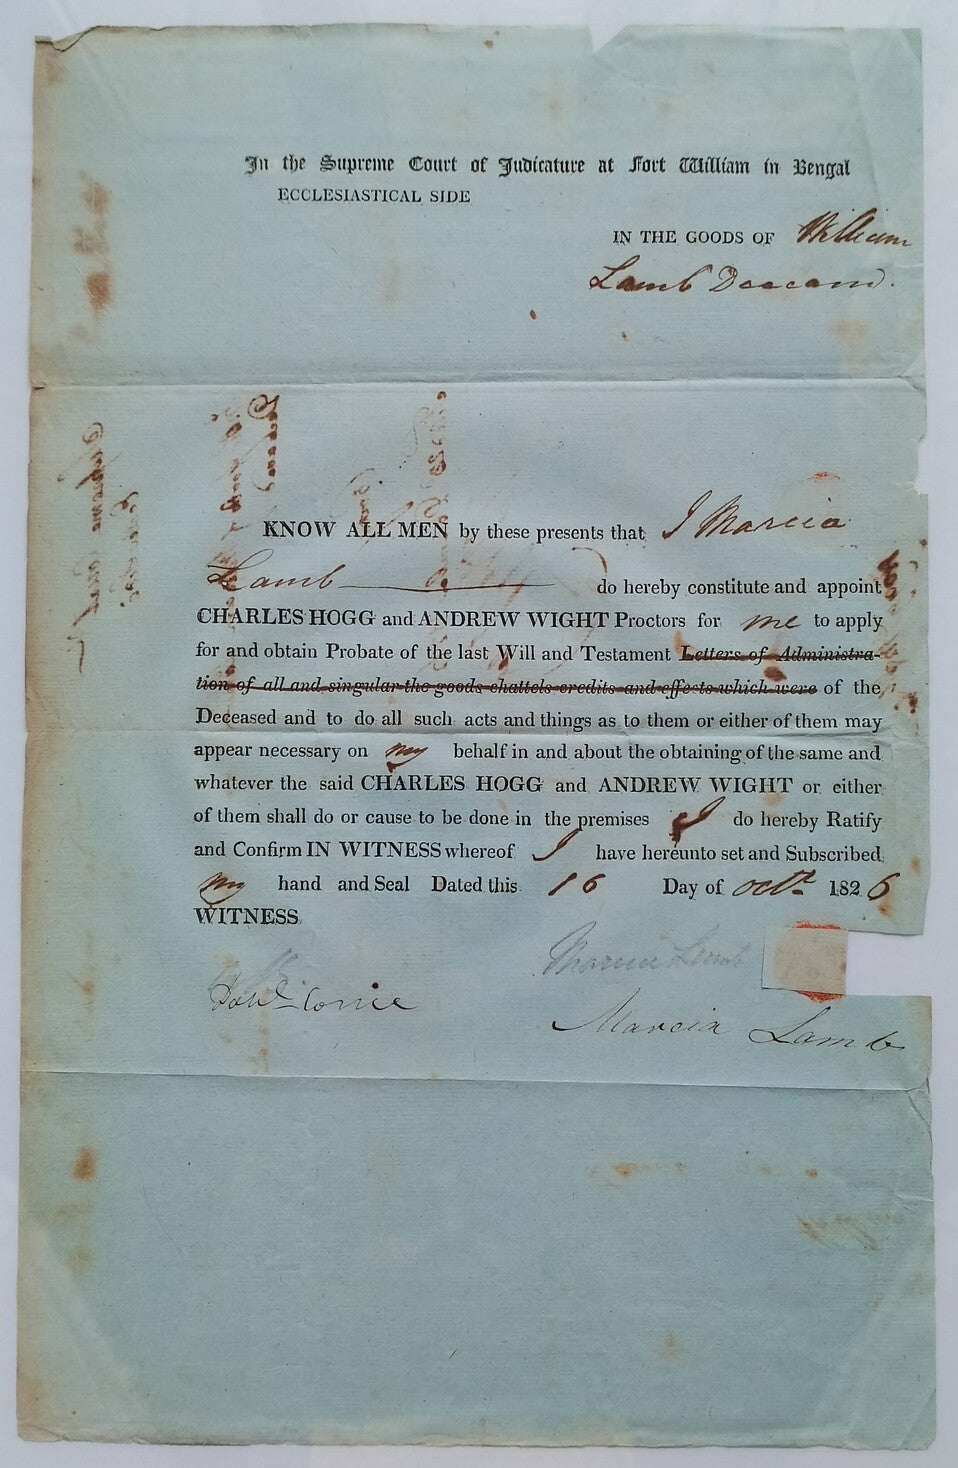 In the Supreme Court of Judicature at Fort William in Bengal
ECCLESIASTICAL SIDE
IN THE GOODS OF William
Lamb Deceased.
KNOW ALL MEN by these presents that I Marcia
Lamb do hereby constitute and appoint
CHARLES HOGG and ANDREW WIGHT Proctors for me to apply
for and obtain Probate of the last Will and Testament Letters of Administra-
tion of all and singular the goods chattels credits and effects which were of the
Deceased and to do all such acts and things as to them or either of them may
appear necessary on my behalf in and about the obtaining of the same and
whatever the said CHARLES HOGG and ANDREW WIGHT or either
of them shall do or cause to be done in the premises I do hereby Ratify
and Confirm IN WITNESS whereof I have hereunto set and Subscribed
my hand and Seal Dated this 16 Day of Octr 1826
WITNESS
Marcia Lamb
Corrie
Marcia Lamb